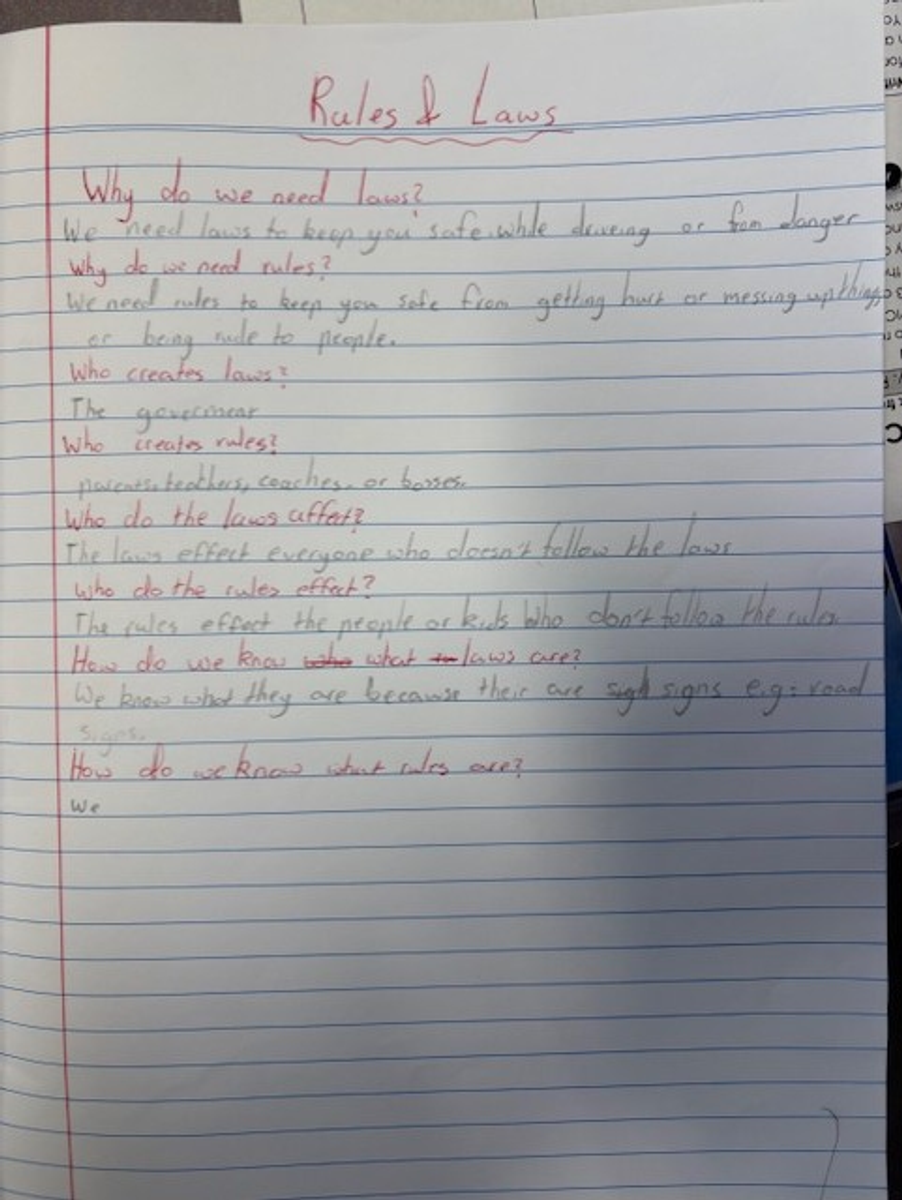 Rules & Laws
Why do we need laws?
We need laws to keep you safe while driveing or from danger
Why do we need rules?
We need rules to keep you safe from getting hurt or messing up things
or being rude to people.
Who creates laws?
The goverment
Who creates rules?
parents, teathers, coaches, or bosses.
Who do the laws affect?
The laws effect everyone who doesn't follow the laws
Who do the rules effect?
The rules effect the people or kids who don't follow the rules
How do we know what laws are?
We know what they are because their are signs e.g: road
signs.
How do we know what rules are?
We